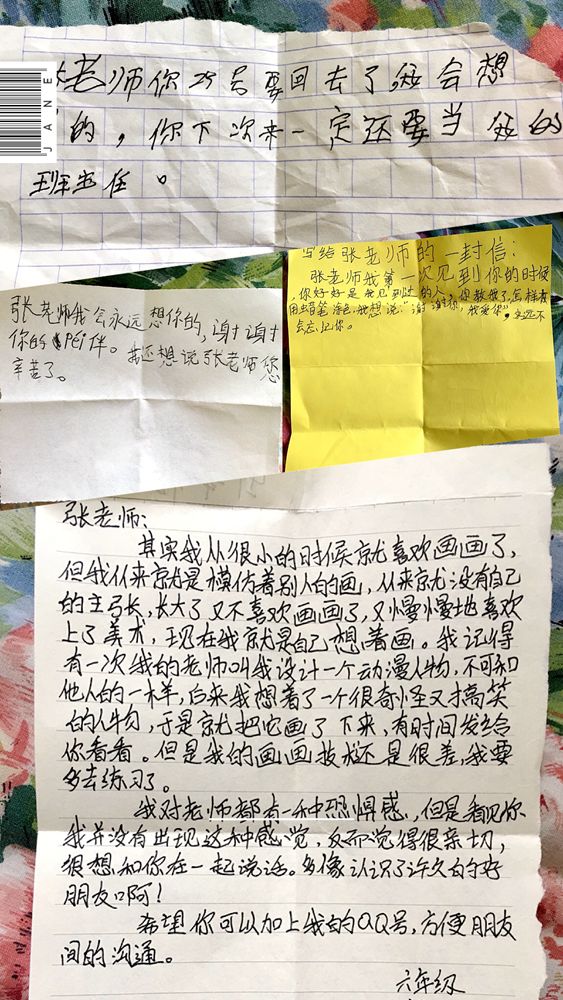 JANE
张老师你25号要回去了,我会想
的,你下次来一定还要当我的
班主任。
写给张老师的一封信:
张老师我第一次见到你的时候
,你好好是我见到过的人,你教我了,怎样去
用蜡笔涂色,我想说:“谢谢你,我爱你”,永远不
会忘记你。
张老师我会永远想你的,谢谢
你的陪伴。我还想说张老师您
辛苦了。
张老师:
其实我从很小的时候就喜欢画画了,
但我从来就是模仿着别人的画,从来就没有自己
的主张,长大了又不喜欢画画了,又慢慢地喜欢
上了美术,现在我就是自己想着画。我记得
有一次我的老师叫我设计一个动漫人物,不可和
他人的一样,后来我想着了一个很奇怪又搞笑
的人物,于是就把它画了下来,有时间发给
你看看。但是我的画画技术还是很差,我要
多去练习了。
我对老师都有一种恐惧感,但是看见你
我并没有出现这种感觉,反而觉得很亲切,
很想和你在一起说话。多像认识了许久的好
朋友啊!
希望你可以加上我的QQ号,方便朋友
间的沟通。
六年级